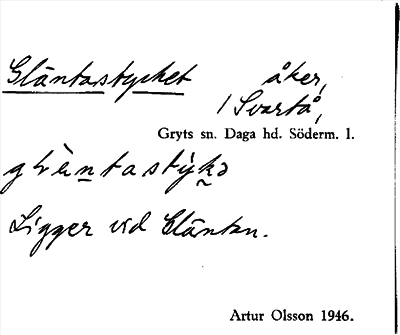 Gläntastycket åker,
/ Svartå,
Gryts sn. Daga hd. Söderm. l.
glä̀ntastýkə
Ligger vid Gläntan.
Artur Olsson 1946.